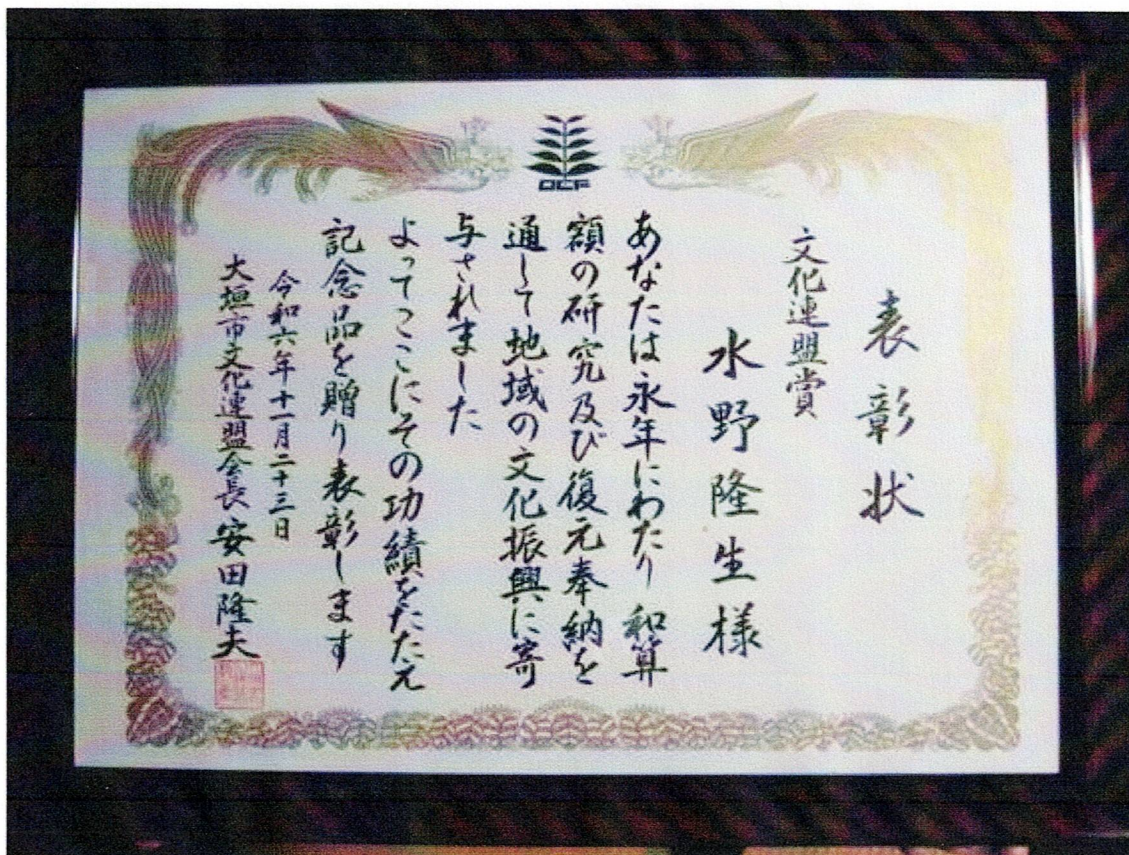 OCF
表彰状
文化連盟賞
水野隆生様
あなたは永年にわたり和算
額の研究及び復元奉納を
通して地域の文化振興に寄
与されました
よってここにその功績をたたえ
記念品を贈り表彰します
令和六年十一月二十三日
大垣市文化連盟会長 安田隆夫